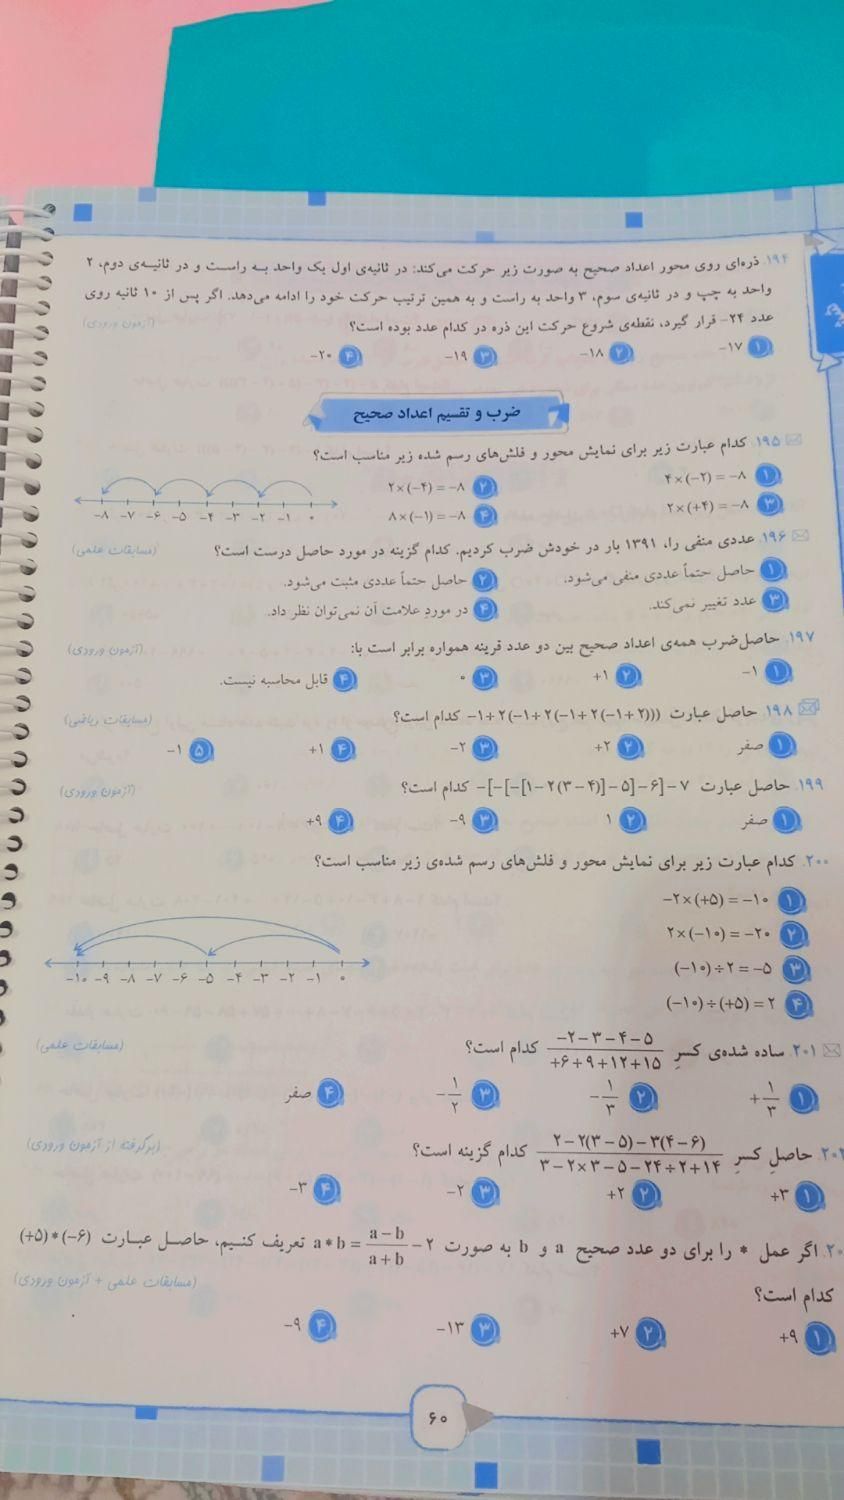 ۱۹۴. ذره‌ای روی محور اعداد صحیح به صورت زیر حرکت می‌کند: در ثانیه‌ی اول یک واحد به راست و در ثانیه‌ی دوم، ۲
واحد به چپ و در ثانیه‌ی سوم، ۳ واحد به راست و به همین ترتیب حرکت خود را ادامه می‌دهد. اگر پس از ۱۰ ثانیه روی
عدد ۲۴- قرار گیرد، نقطه‌ی شروع حرکت این ذره در کدام عدد بوده است؟ (آزمون ورودی)
۱ -۱۷ ۲ -۱۸ ۳ -۱۹ ۴ -۲۰
ضرب و تقسیم اعداد صحیح
۱۹۵. کدام عبارت زیر برای نمایش محور و فلش‌های رسم شده زیر مناسب است؟
۱ ۴×(-۲) = -۸ ۲ ۲×(-۴) = -۸
۳ ۲×(+۴) = -۸ ۴ ۸×(-۱) = -۸
-۸ -۷ -۶ -۵ -۴ -۳ -۲ -۱ ۰
۱۹۶. عددی منفی را، ۱۳۹۱ بار در خودش ضرب کردیم. کدام گزینه در مورد حاصل درست است؟ (مسابقات علمی)
۱ حاصل حتماً عددی منفی می‌شود. ۲ حاصل حتماً عددی مثبت می‌شود.
۳ عدد تغییر نمی‌کند. ۴ در موردِ علامت آن نمی‌توان نظر داد.
۱۹۷. حاصل‌ضرب همه‌ی اعداد صحیح بین دو عدد قرینه همواره برابر است با: (آزمون ورودی)
۱ -۱ ۲ +۱ ۳ ۰ ۴ قابل محاسبه نیست.
۱۹۸. حاصل عبارت -۱+۲(-۱+۲(-۱+۲(-۱+۲))) کدام است؟ (مسابقات ریاضی)
۱ صفر ۲ +۲ ۳ -۲ ۴ +۱ ۵ -۱
۱۹۹. حاصل عبارت -[-[-[۱-۲(۳-۴)]-۵]-۶]-۷ کدام است؟ (آزمون ورودی)
۱ صفر ۲ ۱ ۳ -۹ ۴ +۹
۲۰۰. کدام عبارت زیر برای نمایش محور و فلش‌های رسم شده‌ی زیر مناسب است؟
۱ -۲×(+۵) = -۱۰
۲ ۲×(-۱۰) = -۲۰
۳ (-۱۰)÷۲ = -۵
۴ (-۱۰)÷(+۵) = ۲
-۱۰ -۹ -۸ -۷ -۶ -۵ -۴ -۳ -۲ -۱ ۰
۲۰۱. ساده شده‌ی کسرِ (-۲-۳-۴-۵)/(+۶+۹+۱۲+۱۵) کدام است؟ (مسابقات علمی)
۱ +۱/۳ ۲ -۱/۳ ۳ -۱/۲ ۴ صفر
۲۰. حاصلِ کسرِ (۲-۲(۳-۵)-۳(۴-۶))/(۳-۲×۳-۵-۲۴÷۲+۱۴) کدام گزینه است؟ (برگرفته از آزمون ورودی)
۱ +۳ ۲ +۲ ۳ -۲ ۴ -۳
۲۰. اگر عمل * را برای دو عدد صحیح a و b به صورت a*b = (a-b)/(a+b) -۲ تعریف کنیم، حاصل عبارت (+۵)*(-۶)
کدام است؟ (مسابقات علمی + آزمون ورودی)
۱ +۹ ۲ +۷ ۳ -۱۳ ۴ -۹
۶۰